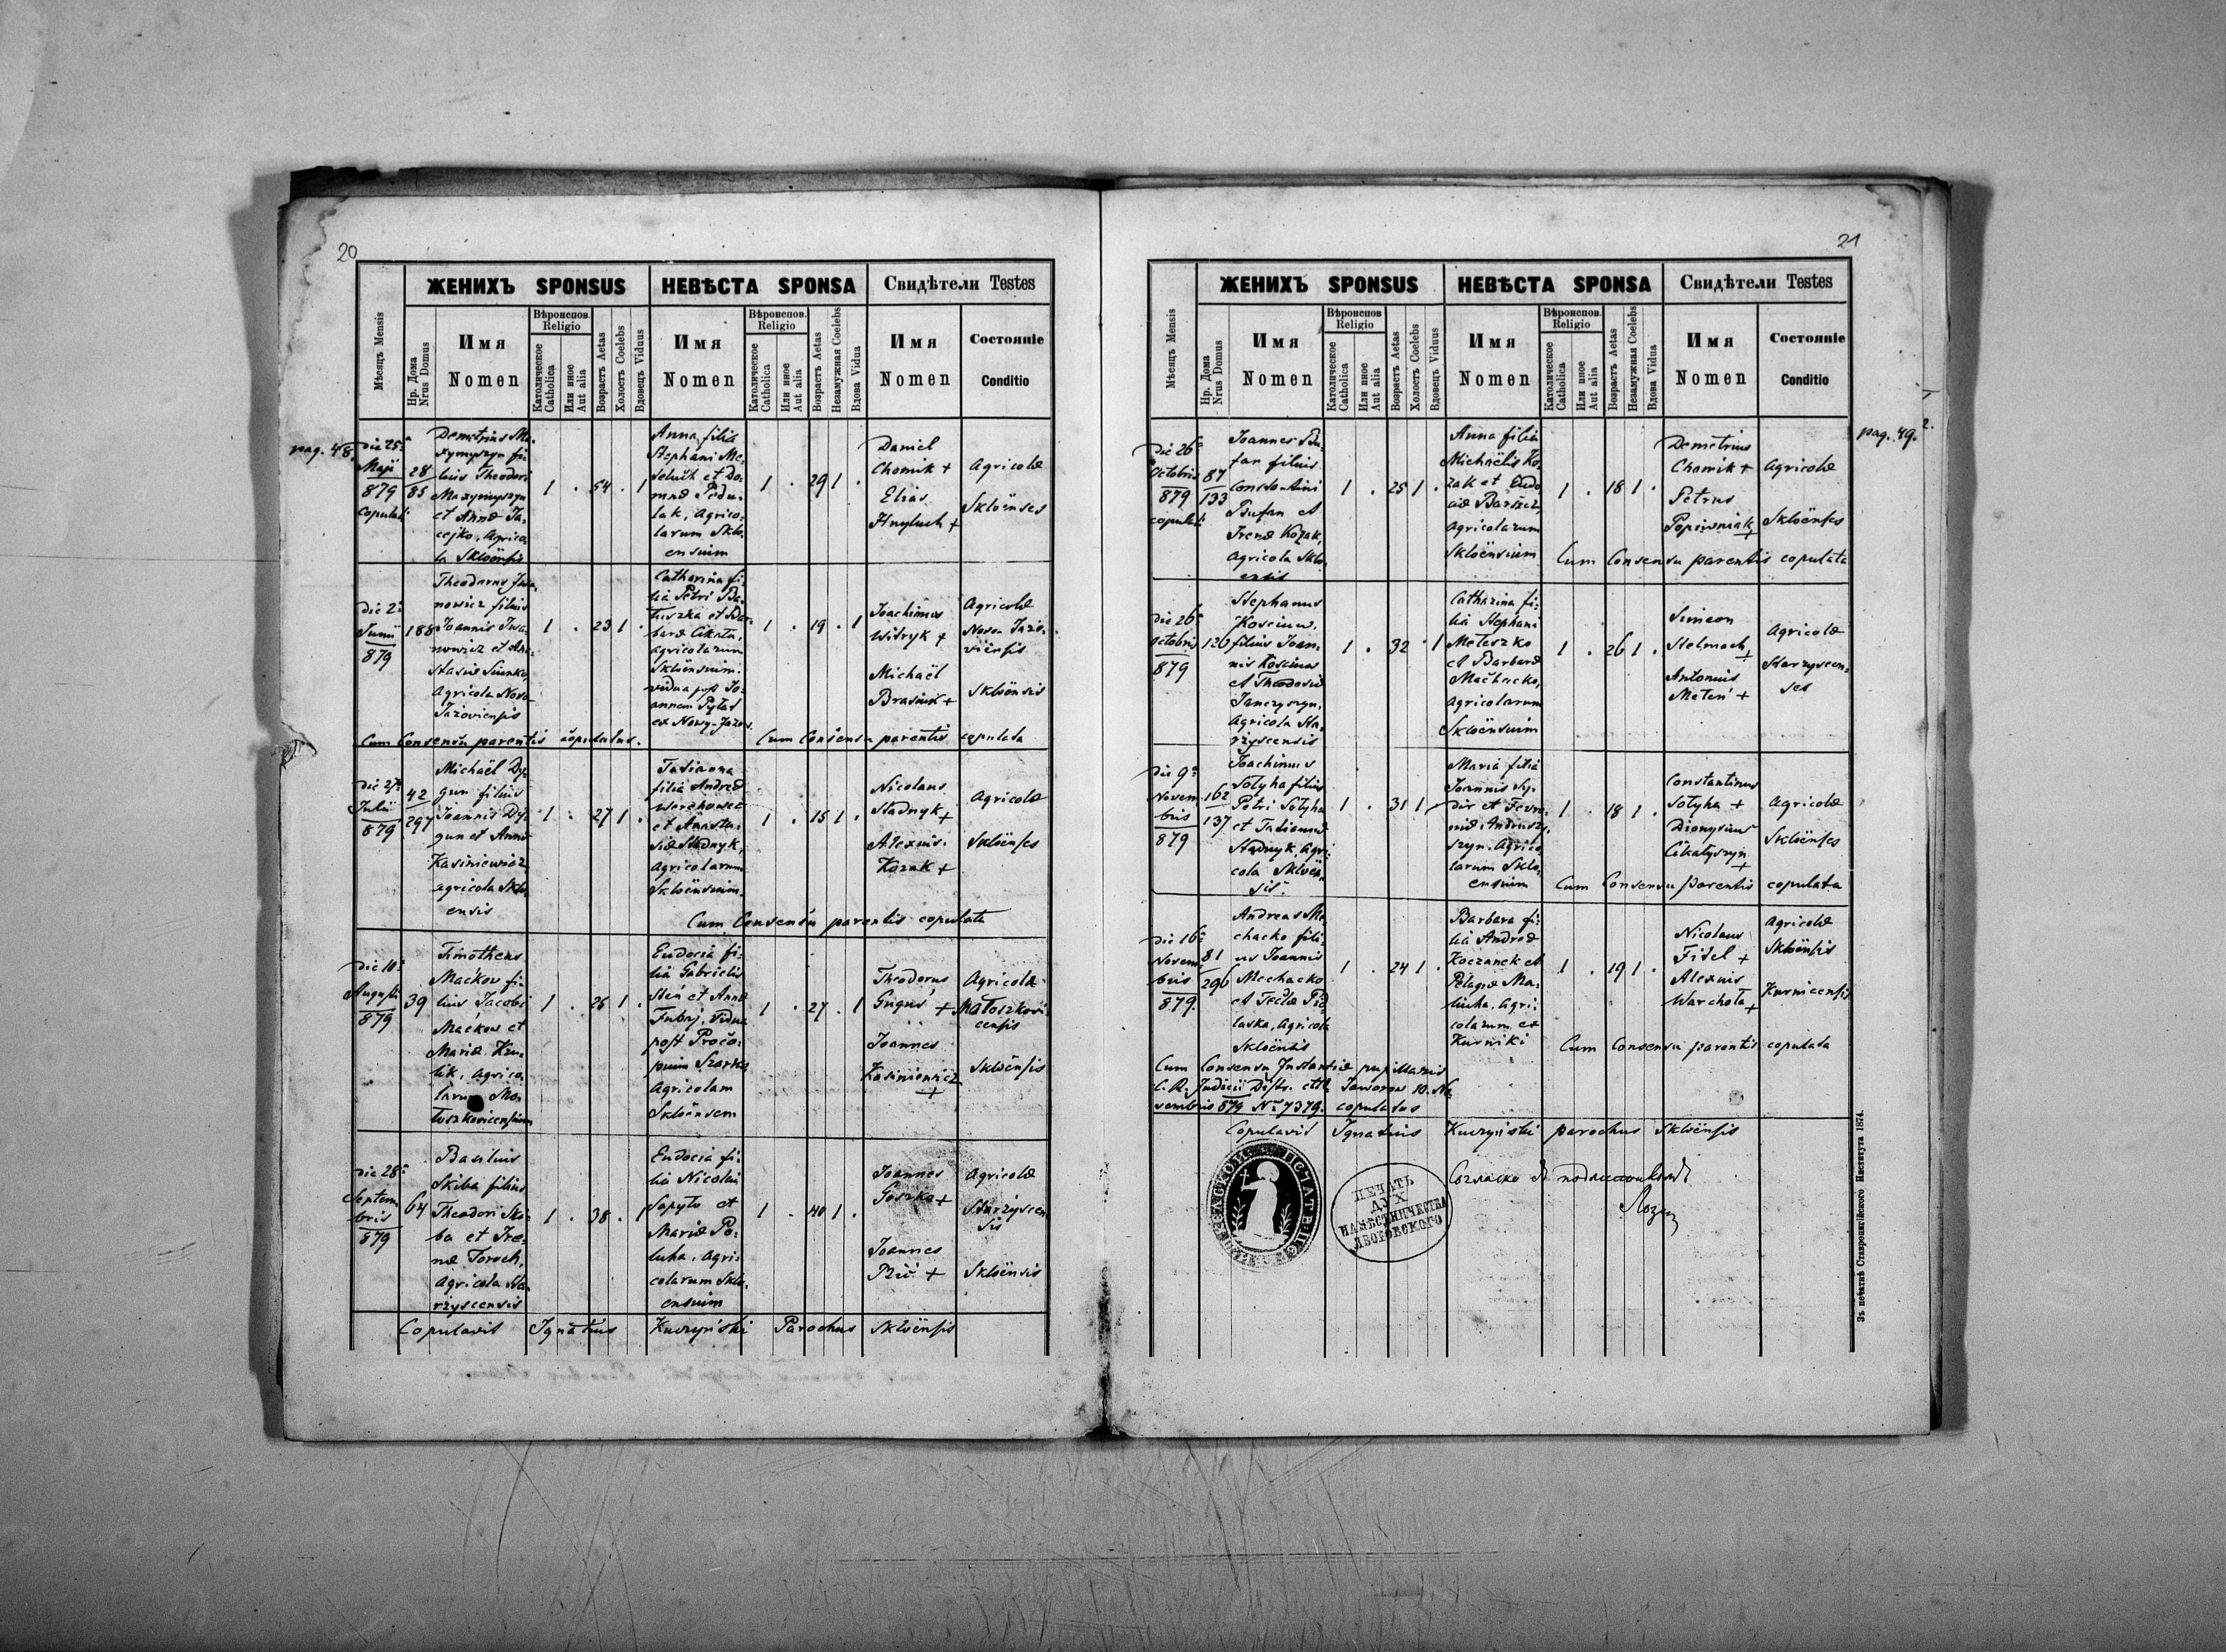 20
ЖЕНИХЪ SPONSUS НЕВѢСТА SPONSA Свидѣтели Testes
Мѣсяцъ Mensis
Нр. Дома
Nrus Domus
Имя
Nomen
Вѣроиспов.
Religio
Католическое
Catholica
Или иное
Aut alia
Возрастъ Aetas
Холостъ Coelebs
Вдовецъ Viduus
Имя
Nomen
Вѣроиспов.
Religio
Католическое
Catholica
Или иное
Aut alia
Возрастъ Aetas
Незамужная Coelebs
Вдова Vidua
Имя
Nomen
Состоянiе
Conditio
pag. 48.
die 25a
Maji
879
copulati
28
85
Demetrius Ma-
xymyszyn fi-
lius Theodori
Maxymyszyn
et Annæ Ja-
cejko, Agrico-
la Skloënsis
1 . 54 . 1
Anna filia
Stephani Me-
et Do-
mnæ Pedu-
lak, Agrico-
larum Sklo-
ensium
1 . 29 1 .
Daniel
Chomik +
Elias
Hnyluch +
Agricolæ
Skloënses
die 2a
Junii
879
188
Theodorus Iwa-
nowicz filius
Joannis Iwa-
nowicz et Ana-
stasiæ Sienko,
Agricola Novo-
Jazoviensis
1 . 23 1 .
Catharina fi-
lia Petri Ba-
tiuszka et Bar-
baræ Cikata,
agricolarum
Skloënsium.
vidua post Jo-
annem Pylat
ex Nowy-Jazow.
1 . 19 . 1
Joachimus
Witryk +
Michaël
Brasiuk +
Agricolæ
Novo Jazo-
viensis
Skloënsis
Cum Consensu parentis copulatus. Cum Consensu parentis copulata
die 27a
Julii
879
42
297
Michaël Dy-
gun filius
Joannis Dy-
gun et Annæ
Kasiniewicz
agricola Sklo-
ensis
1 . 27 1 .
Tatianna
filia Andreæ
et Anasta-
siæ Stadnyk,
Agricolarum
Skloënsium.
1 . 15 1 .
Nicolaus
Stadnyk +
Alexius
Kozak +
Agricolæ
Skloënses
Cum Consensu parentis copulata
die 10a
Augusti
879
39
Timotheus
Maćkow fi-
lius Jacobi
Maćkow et
Mariæ Kru-
lik, agrico-
larum Mo-
loszkovicensium
1 . 26 1 .
Eudocia fi-
lia Gabrielis
Steń et Annæ
vidua
post Proco-
pium Szarko
Agricolam
Skloënsem
1 . 27 . 1
Theodorus
Guguś +
Joannes
Kasiniewicz
+
Agricola
Małoszkovi-
censis
Skloënsis
die 28a
Septem-
bris
879
64
Basilius
Skiba filius
Theodori Ski-
ba et Ire-
næ Toroch,
Agricola Sta-
rzyscensis
1 . 38 . 1
Eudocia fi-
lia Nicolai
Sopyło et
Mariæ Pa-
luha, Agri-
colarum Sklo-
ensium
1 . 40 1 .
Joannes
Goszko +
Joannes
+
Agricolæ
Starzyscen-
sis
Skloënsis
Copulavit Ignatius Kuczyński Parochus Skloënsis
21
ЖЕНИХЪ SPONSUS НЕВѢСТА SPONSA Свидѣтели Testes
Мѣсяцъ Mensis
Нр. Дома
Nrus Domus
Имя
Nomen
Вѣроиспов.
Religio
Католическое
Catholica
Или иное
Aut alia
Возрастъ Aetas
Холостъ Coelebs
Вдовецъ Viduus
Имя
Nomen
Вѣроиспов.
Religio
Католическое
Catholica
Или иное
Aut alia
Возрастъ Aetas
Незамужная Coelebs
Вдова Vidua
Имя
Nomen
Состоянiе
Conditio
pag. 49.
die 26a
Octobris
879
copulati
87
133
Joannes Bu-
fan filius
Constantini
Bufan et
Irenæ Kozak,
Agricola Sklo-
ensis
1 . 25 1 .
Anna filia
Michaëlis Ko-
zak et Eudo-
ciæ
Agricolarum
Skloënsium
1 . 18 1 .
Demetrius
Chomik +
Petrus
Popiwniak +
Agricolæ
Skloënses
Cum Consensu parentis copulata
die 26a
Octobris
879
120
Stephanus
Kosciuw,
filius Joan-
nis Kosciuw
et Theodosiæ
Janczyszyn,
Agricola Sta-
rzyscensis
1 . 32 . 1
Catharina fi-
lia Stephani
Meleszko
et Barbaræ
Agricolarum
Skloënsium
1 . 26 1 .
Simeon
Stelmach +
Antonius
Meleń +
Agricolæ
Starzyscen-
ses
die 9a
Novem-
bris
879
162
137
Joachimus
Sotyha filius
Petri Sotyha
et Tatiannæ
Stadnyk, Agri-
cola Skloën-
sis.
1 . 31 1 .
Maria filia
Joannis Sy-
dir et Fevro-
niæ Andruszy-
szyn, Agrico-
larum Sklo-
ensium
1 . 18 1 .
Constantinus
Sotyha +
Dionysius
Cikałyszyn
+
Agricolæ
Skloënses
Cum Consensu parentis copulata
die 16a
Novem-
bris
879.
81
296
Andreas Me-
chacko fili-
us Joannis
Mechacko
et Teclæ Pid-
laska, Agricola
Skloënsis
1 . 24 1 .
Barbara fi-
lia Andreæ
Koczanek et
Pelagiæ Ma-
liucha, Agri-
colarum ex
Kurniki
1 . 19 1 .
Nicolaus
Fidel +
Alexius
Warchoła +
Agricolæ
Skloënsis
Kurnicensis
Cum Consensu parentis copulata
Cum Consensu Instantiæ pupillaris
C. R. Judicii Distr. ddto Jaworow 10. No-
vembris 879 Nro 7379. copulatus
Copulavit Ignatius Kuczyński parochus Skloënsis
ПЕЧАТЬ
ДУХ
НАМѢСТНИЧЕСТВА
ЯВОРОВСКОГО
Согласно
Зъ печатнѣ Ставропигiйского Института 1874.